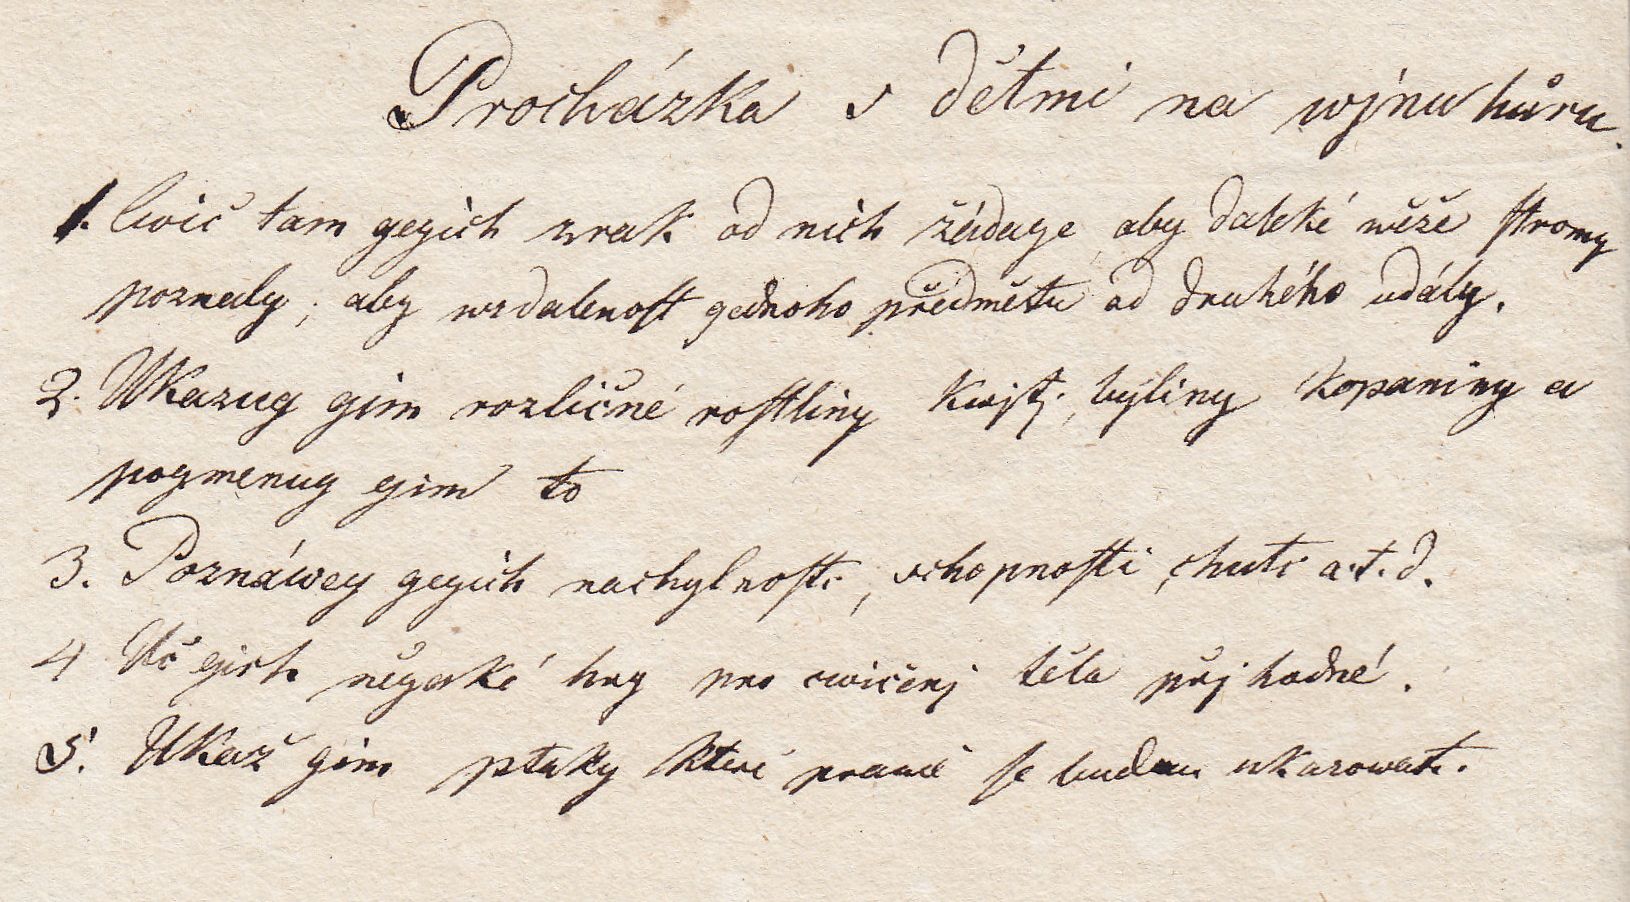 Procházka s dětmi na wjnu hůru.
1. Cwič tam gegich zrak od nich žádage aby daleké wěže stromy
poznaly, aby wzdalenost gednoho předmětu od druhého udály.
2. Ukazug gim rozličné rostliny kwjtj, byliny kopaniny a
pogmenug gim to
3. Poznáwey gegich nachylnosti, schopnosti, chuti a.t.d.
4 Uč gich něgaké hry pro cwičenj těla přjhodné.
5. Ukaž gim ptaky kteri prawě se budau ukazowati.